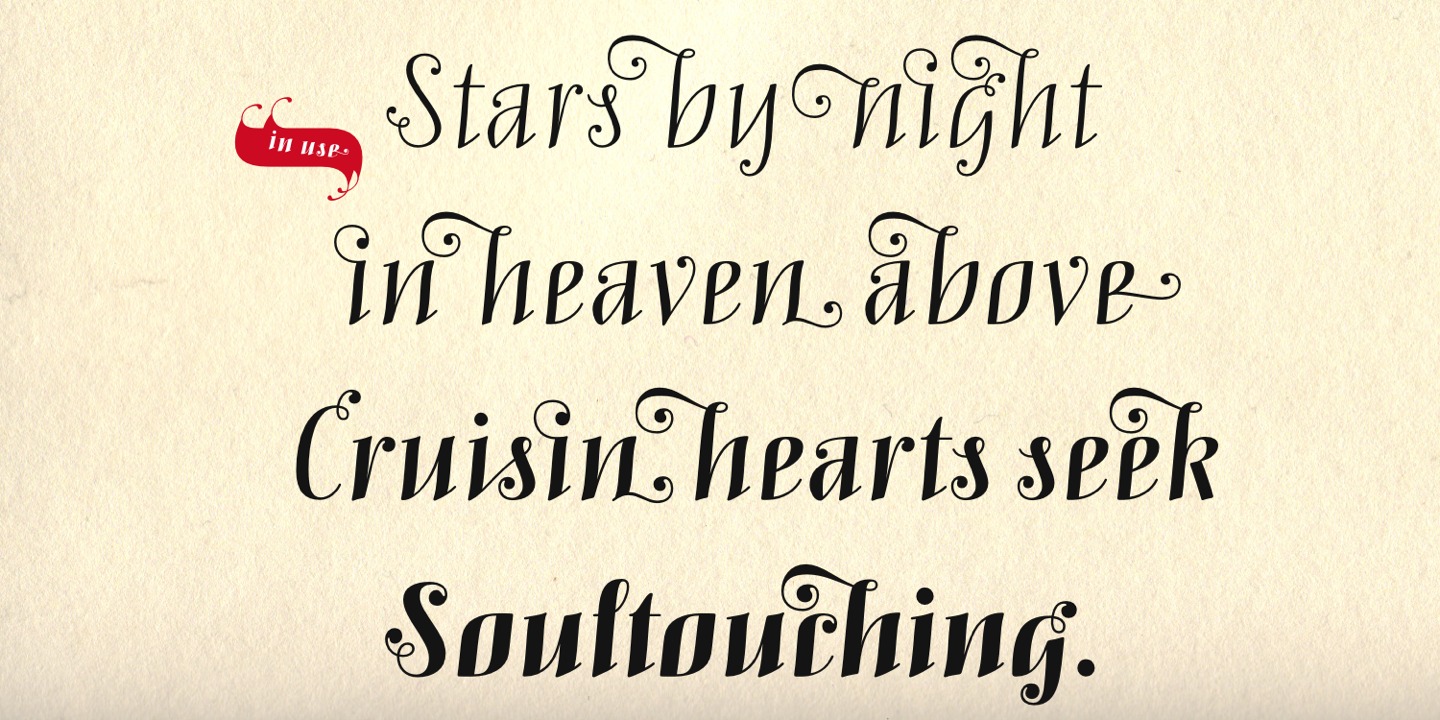 Stars by night
in use
in heaven above
Cruisin hearts seek
Soultouching.